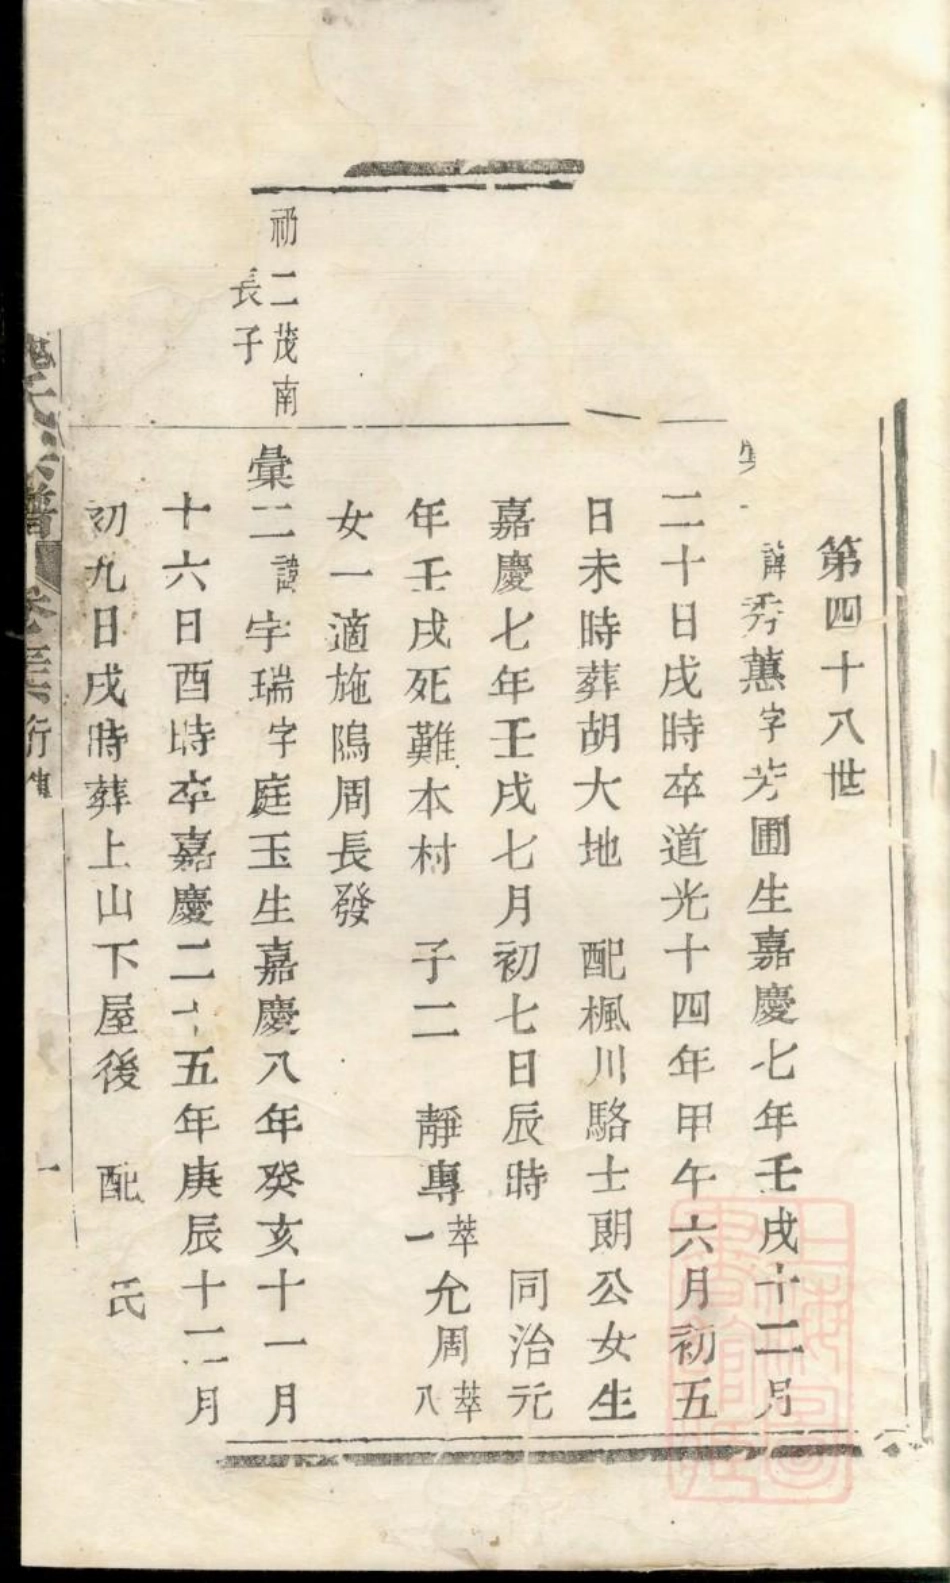 第四十八世
諱秀蕙字芳圃生嘉慶七年壬戌十二月
二十日戌時卒道光十四年甲午六月初五
日未時葬胡大地 配楓川駱士朗公女生
嘉慶七年壬戌七月初七日辰時 同治元
年壬戌死難本村 子二 靜專萃一允周萃八
女一適施隖周長發
祕二茂南
長子
彙二諱字瑞字庭玉生嘉慶八年癸亥十一月
十六日酉時卒嘉慶二十五年庚辰十二月
初九日戌時葬上山下屋後 配 氏
氏宗譜 卷 行傳 一